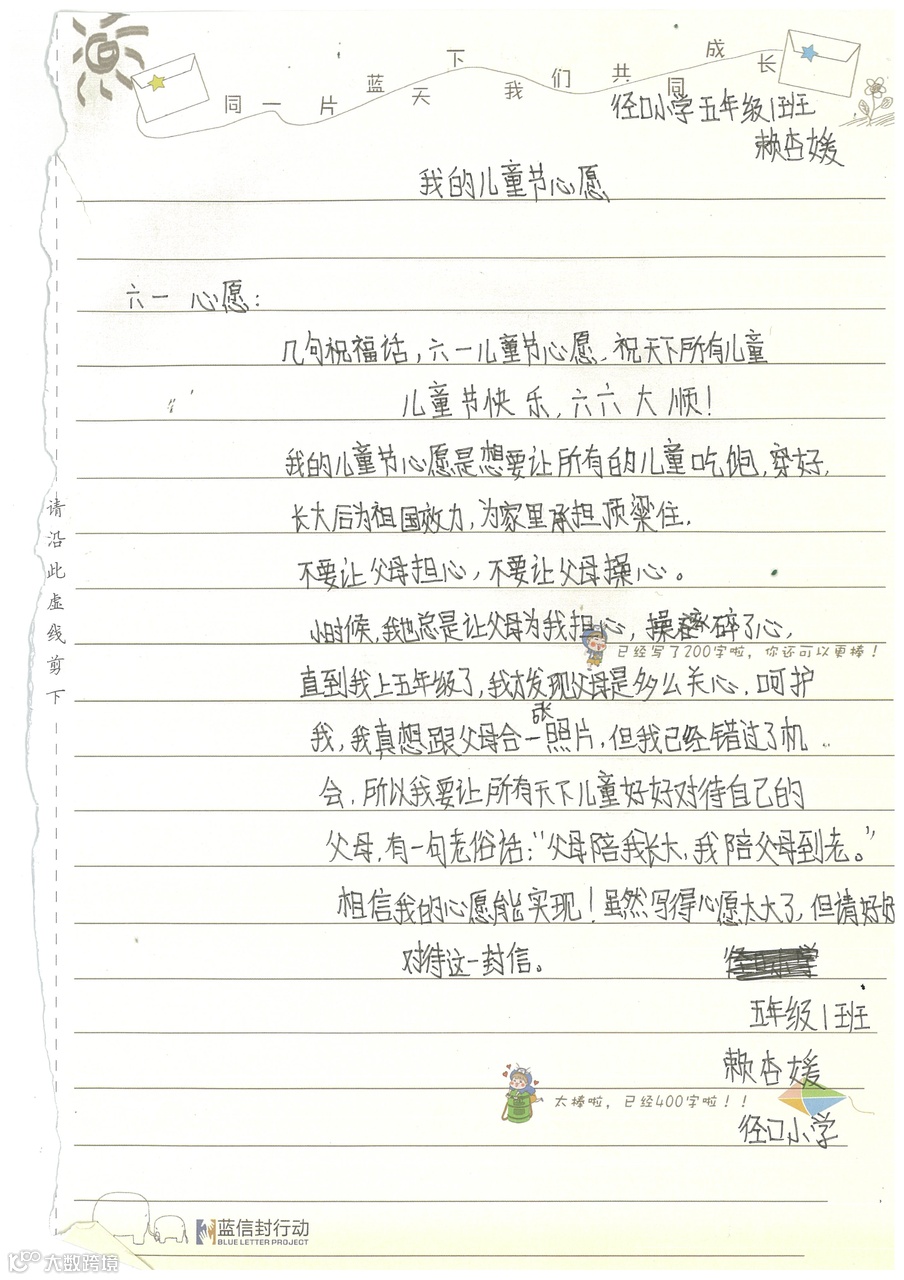 同一片蓝天下我们共同成长
径口小学五年级1班
赖杏媛
我的儿童节心愿
六一 心愿：
几句祝福话，六一儿童节心愿，祝天下所有儿童
儿童节快乐，六六大顺！
我的儿童节心愿是想要让所有的儿童吃饱，穿好，
长大后为祖国效力，为家里承担顶梁住，
不要让父母担心，不要让父母操心。
小时候，我也总是让父母为我担心，操碎了心，
已经写了200字啦，你还可以更棒！
直到我上五年级了，我才发现父母是多么关心，呵护
我，我真想跟父母合一张照片，但我已经错过了机
会，所以我要让所有天下儿童好好对待自己的
父母，有一句老俗话：“父母陪我长大，我陪父母到老。”
相信我的心愿能实现！虽然写得心愿太大了，但请好好
对待这一封信。
五年级1班
赖杏媛
太棒啦，已经400字啦！！
径口小学
请沿此虚线剪下
蓝信封行动
BLUE LETTER PROJECT
大数跨境